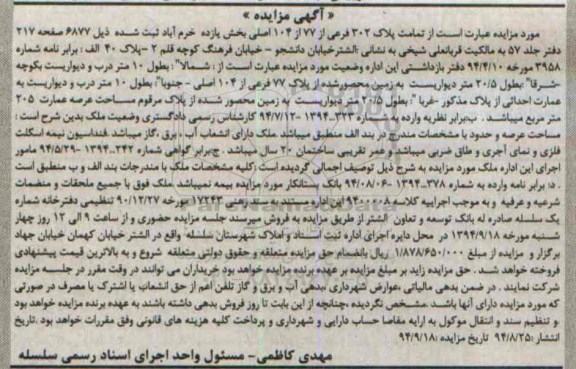 « آگهی مزایده »
مورد مزایده عبارت است از تمامت پلاک ۳۰۲ فرعی از ۷۷ از ۱۰۴ اصلی بخش یازده خرم آباد ثبت شده ذیل ۶۸۷۷ صفحه ۲۱۷
دفتر جلد ۵۷ به مالکیت قربانعلی شیخی به نشانی :الشترخیابان دانشجو – خیابان فرهنگ کوچه قلم ۲ –پلاک ۴۰ الف : برابر نامه شماره
۳۹۵۸ مورخه ۹۴/۴/۱۰ دفتر بازداشتی این اداره وضعیت مورد مزایده عبارت است از : شمالا" : بطول ۱۰ متر درب و دیواریست بکوچه
-شرقا" بطول ۲۰/۵ متر دیواریست به زمین محصورشده از پلاک ۷۷ فرعی از ۱۰۴ اصلی – جنوبا" بطول ۱۰ متر درب و دیواریست به
عمارت احداثی از پلاک مذکور -غربا ": بطول ۲۰/۵ متر دیواریست به زمین محصور شده از پلاک مرقوم مساحت عرصه عمارت ۲۰۵
متر مربع میباشد . ب:برابر نظریه وارده به شماره ۳۲۳–۱۳۹۴ –۹۴/۷/۱۲ کارشناس رسمی دادگستری وضعیت ملک بدین شرح است :
مساحت عرصه و حدود با مشخصات مندرج در بند الف منطبق میباشد ملک دارای انشعاب آب ،برق ،گاز میباشد فنداسیون نیمه اسکلت
فلزی و نمای آجری و طاق ضربی میباشد و عمر تقریبی ساختمان ۲۰ سال میباشد .ج:برابر گواهی شماره ۲۴۲–۱۳۹۴ –۹۴/۵/۲۹ مامور
اجرای این اداره ملک مورد مزایده به شرح ذیل توصیف اجمالی گردیده است :کلیه مشخصات ملک با مندرجات بند الف و ب منطبق است
. د: برابر نامه وارده به شماره ۳۷۸–۱۳۹۴ –۹۴/۰۸/۰۶ بانک بستانکار مورد مزایده بیمه نمیباشد ملک فوق با جمیع ملحقات و منضمات
شرعیه و عرفیه و به موجب اجراییه کلاسه ۹۴۰۰۰۰۸ این اداره مستند به سند رهنی ۱۷۲۴۳ مورخه ۹۰/۱۲/۲۷ تنظیمی دفترخانه شماره
یک سلسله صادره له بانک توسعه و تعاون الشتر از طریق مزایده به فروش میرسند جلسه مزایده حضوری و از ساعت ۹ الی ۱۲ روز چهار
شنبه مورخه ۱۳۹۴/۹/۱۸ در محل دایره اجرای اداره ثبت اسناد و املاک شهرستان سلسله واقع در الشتر خیابان کهمان خیابان جهاد
برگزار و مزایده از مبلغ ۱/۸۷۸/۶۵۰/۰۰۰ ریال بانضمام حق مزایده متعلقه و حقوق دولتی متعلقه شروع و به بالاترین قیمت پیشنهادی
فروخته خواهد شد . حق مزایده زاید بر مبلغ مزایده بر عهده برنده مزایده خواهد بود خریداران می توانند در وقت مقرر در جلسه مزایده
شرکت نمایند . در ضمن بدهی مالیاتی ،عوارض شهرداری بدهی آب و برق و گاز تلفن اعم از حق انشعاب یا اشتراک یا مصرف در صورتی
که مورد مزایده دارای آنها باشد مشخص نگردیده ،چنانچه از این بابت تا روز فروش بدهی داشته باشند به عهده برنده مزایده خواهد بود
و تنظیم سند و انتقال موکول به ارایه مفاصا حساب دارایی و شهرداری و پرداخت کلیه هزینه های قانونی وفق مقررات خواهد بود .تاریخ
انتشار :۹۴/۸/۲۵ تاریخ مزایده :۹۴/۹/۱۸
مهدی کاظمی– مسئول واحد اجرای اسناد رسمی سلسله